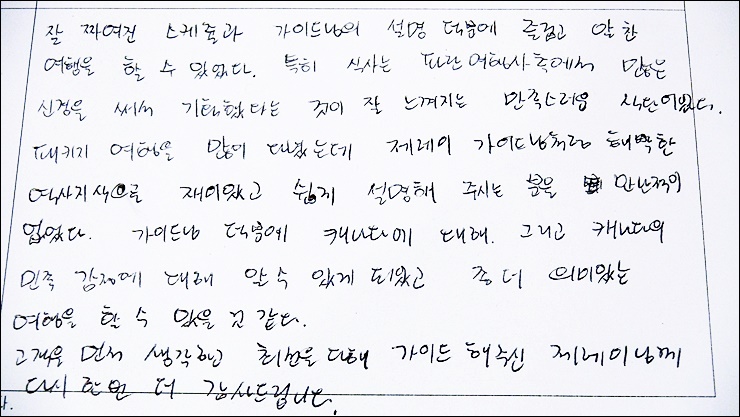 잘 짜여진 스케줄과 가이드님의 설명 덕분에 즐겁고 알찬
여행을 할 수 있었다. 특히 식사는 파란여행사측에서 많은
신경을 써서 기획했다는 것이 잘 느껴지는 만족스러운 식단이었다.
패키지 여행을 많이 다녔는데 제레미 가이드님처럼 해박한
역사지식으로 재미있고 쉽게 설명해 주시는 분을 만난적이
없었다. 가이드님 덕분에 캐나다에 대해. 그리고 캐나다의
민족 감정에 대해 알 수 있게 되었고 좀 더 의미있는
여행을 할 수 있을 것 같다.
고객을 먼저 생각하고 최선을 다해 가이드 해주신 제레미님께
다시 한번 더 감사드립니다.